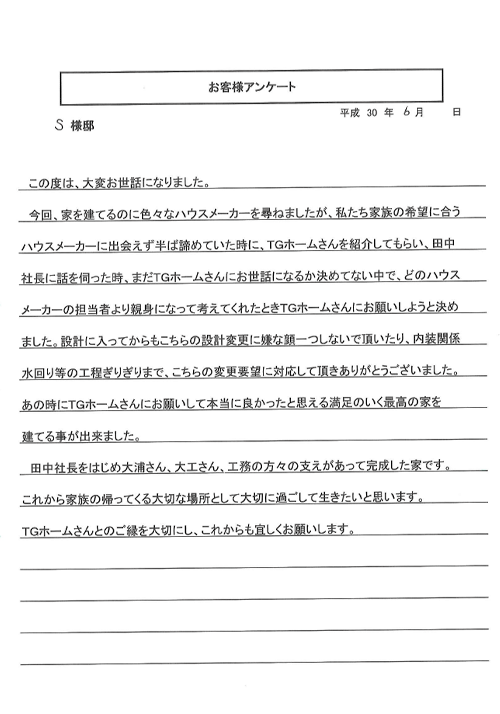 お客様アンケート
平成 30 年 6 月 日
S 様邸
この度は、大変お世話になりました。
今回、家を建てるのに色々なハウスメーカーを尋ねましたが、私たち家族の希望に合う
ハウスメーカーに出会えず半ば諦めていた時に、TGホームさんを紹介してもらい、田中
社長に話を伺った時、まだTGホームさんにお世話になるか決めてない中で、どのハウス
メーカーの担当者より親身になって考えてくれたときTGホームさんにお願いしようと決め
ました。設計に入ってからもこちらの設計変更に嫌な顔一つしないで頂いたり、内装関係
水回り等の工程ぎりぎりまで、こちらの変更要望に対応して頂きありがとうございました。
あの時にTGホームさんにお願いして本当に良かったと思える満足のいく最高の家を
建てる事が出来ました。
田中社長をはじめ大浦さん、大工さん、工務の方々の支えがあって完成した家です。
これから家族の帰ってくる大切な場所として大切に過ごして生きたいと思います。
TGホームさんとのご縁を大切にし、これからも宜しくお願いします。